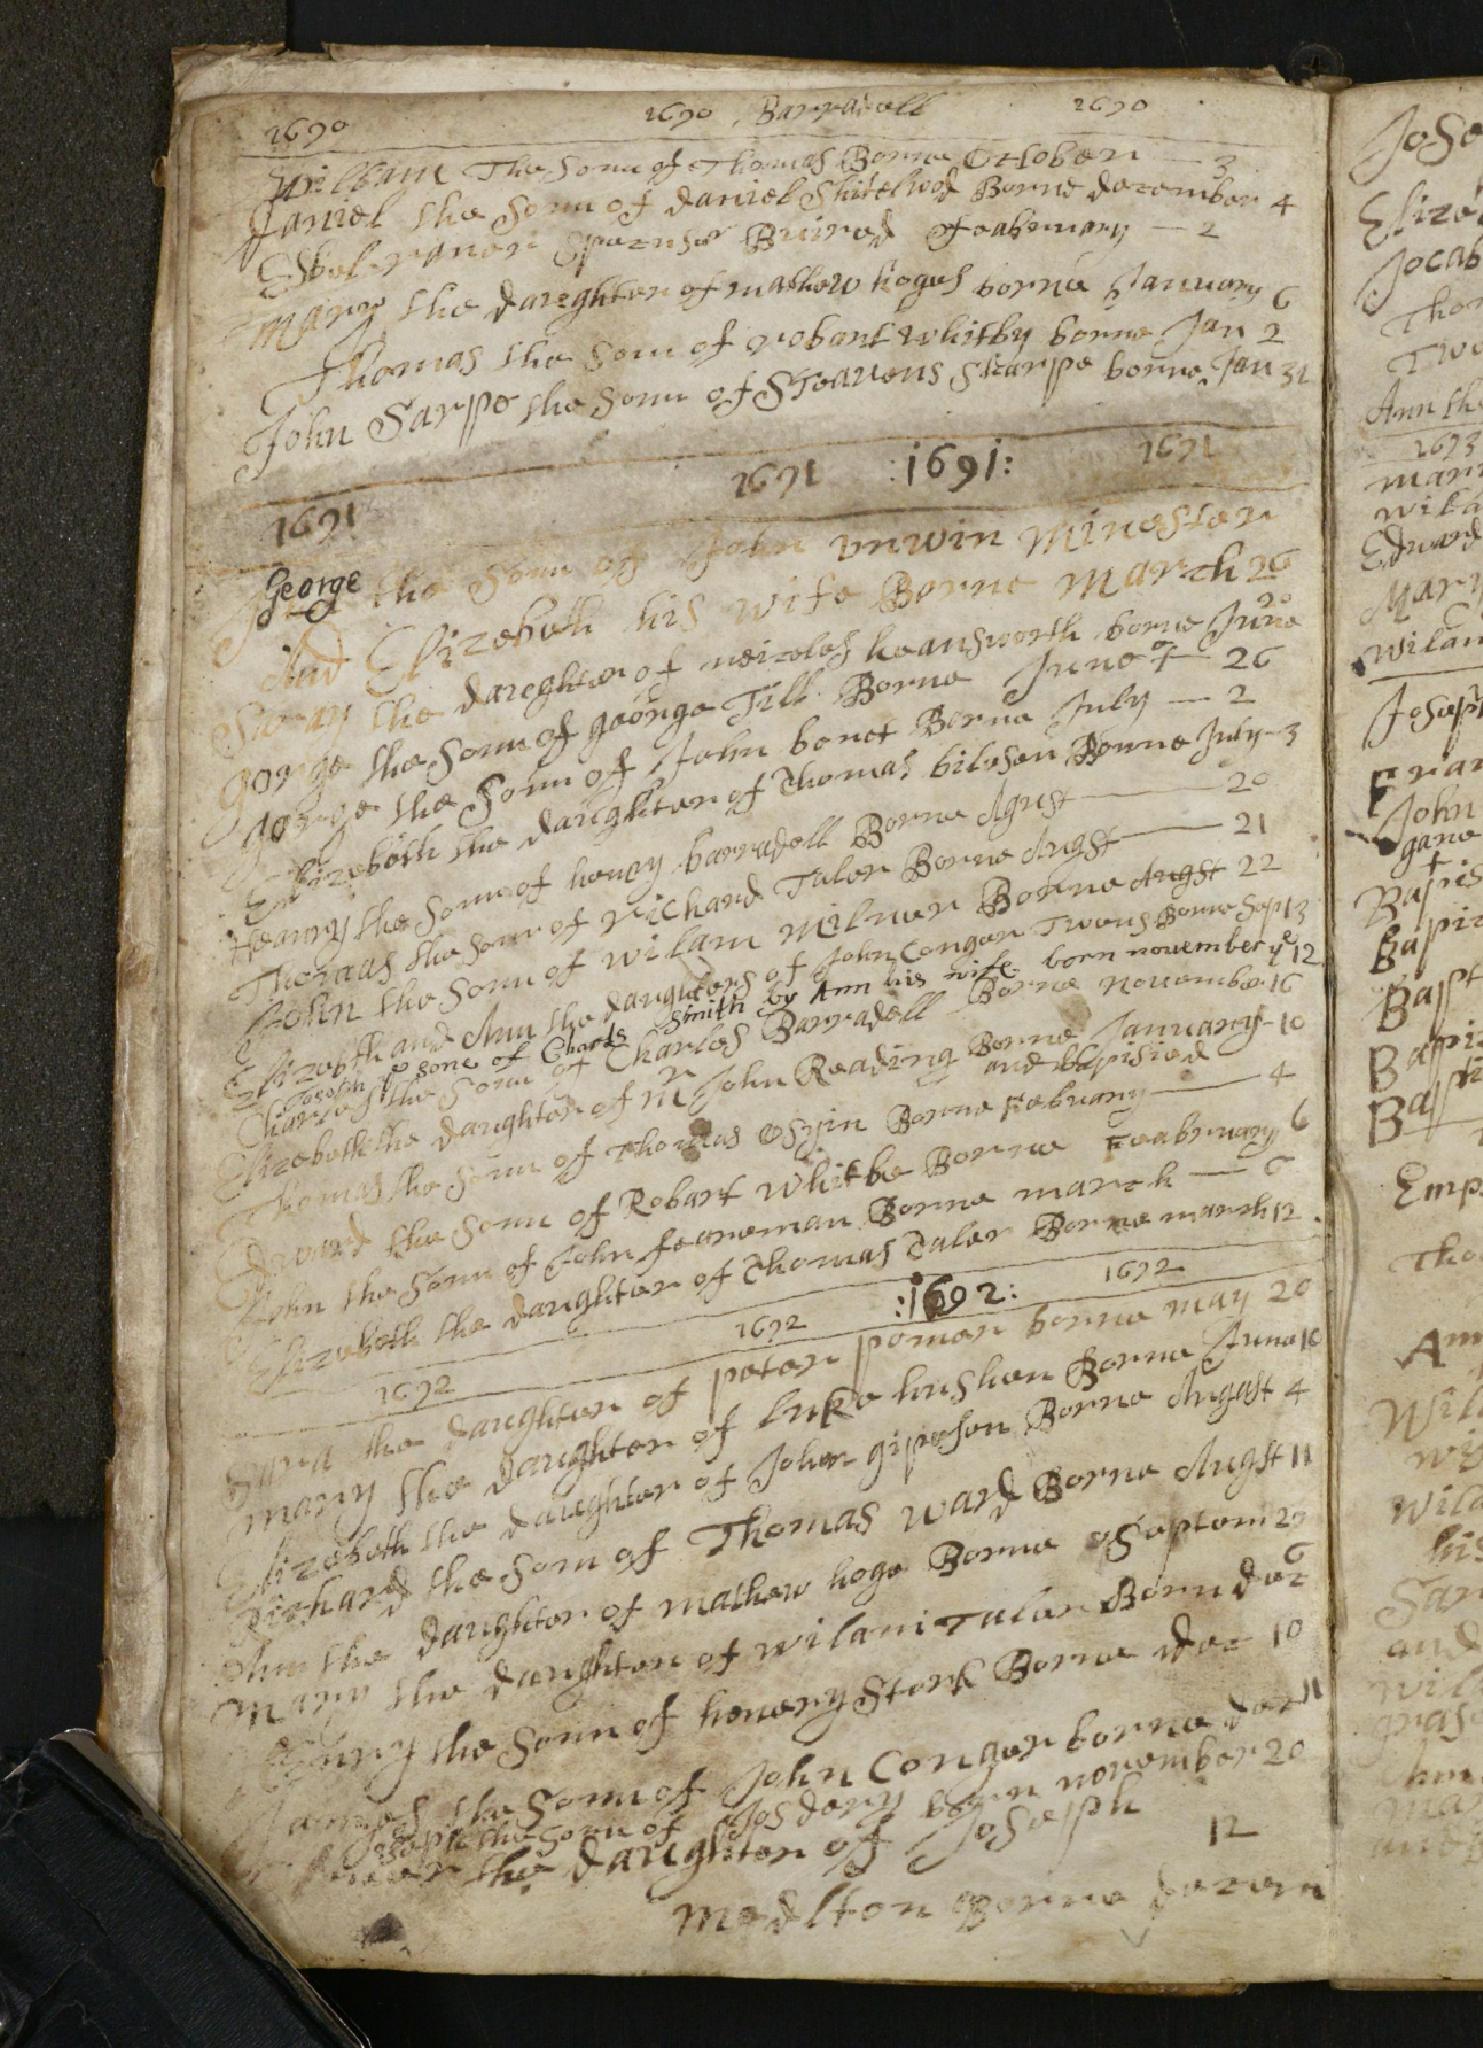 1690 1690 Barradell 1690
William The Sonn of Thomas Borne October — 3
daniel the Sonn of daniel Shitelwod Borne december 4
Buired feabruary — 2
Mary the daughter of mathew hoges borne January 6
Thomas the Sonn of robart whitby borne Jan 2
John Sarpe the Sonn of Steauens Skarpe borne Jan 31
1691 1691 :1691: 1691
George the Sonn of John vnwin Minester
And Elizebeth his wife Borne March 26
the daughter of heansworth borne June 20
gorge the Sonn of george Till Borne June — 26
gorge the Sonn of John bonet Borne July — 2
Elizebeth the daughter of Thomas bilson Borne July - 3
Heanry the Sonn of henry barradell Borne Agust — 20
Thomas the Sonn of richard Taler Borne Augst — 21
John the Sonn of wilam milner Borne Augst 22
Elizebeth and Ann the daughters of John Conger Twens Borne Sep 13
Joseph ye sone of Charls Smith by Ann his wife born november ye 12
Charles the Sonn of Charles Barradell Borne nouember 16
Elizebeth the daughter of mr John Reading Borne January - 10
and bapisied
Thomas the Sonn of Thomas Borne Februany — 4
Edward the Sonn of Robart whitbe Borne Feabruary 6
John the Sonn of John feareman Borne march — 6
Elizebeth the daughter of Thomas Taler Borne march 12
1692 1692 :1692: 1692
Sara the daughter of peter pomer borne may 20
mary the daughter of luke hushen Borne June 10
Elizebeth the daughter of John gipeson Borne August 4
Richard the Sonn of Thomas ward Borne Augst 11
Ann the daughter of mathew hoge Borne Septem 29
mary the daughter of wilam Taler Born dec 6
Henry the Sonn of henery Stork Borne dec 10
James the Sonn of John Conger borne dec 11
the Sonn of Jos dery born november 20
the daughter of Joseph 12
medlton Borne decem
Jose
Elizeb
Jocab
Thom
Two
Ann the
1693
mary
wila
Edward
Mary
wilam
Joseph
Fran
John
gane
Baptis
Baptiz
Bapt
Bapti
Bapti
Emp
Tho
Ann
Wil
wi
wila
his
Sar
and
wil